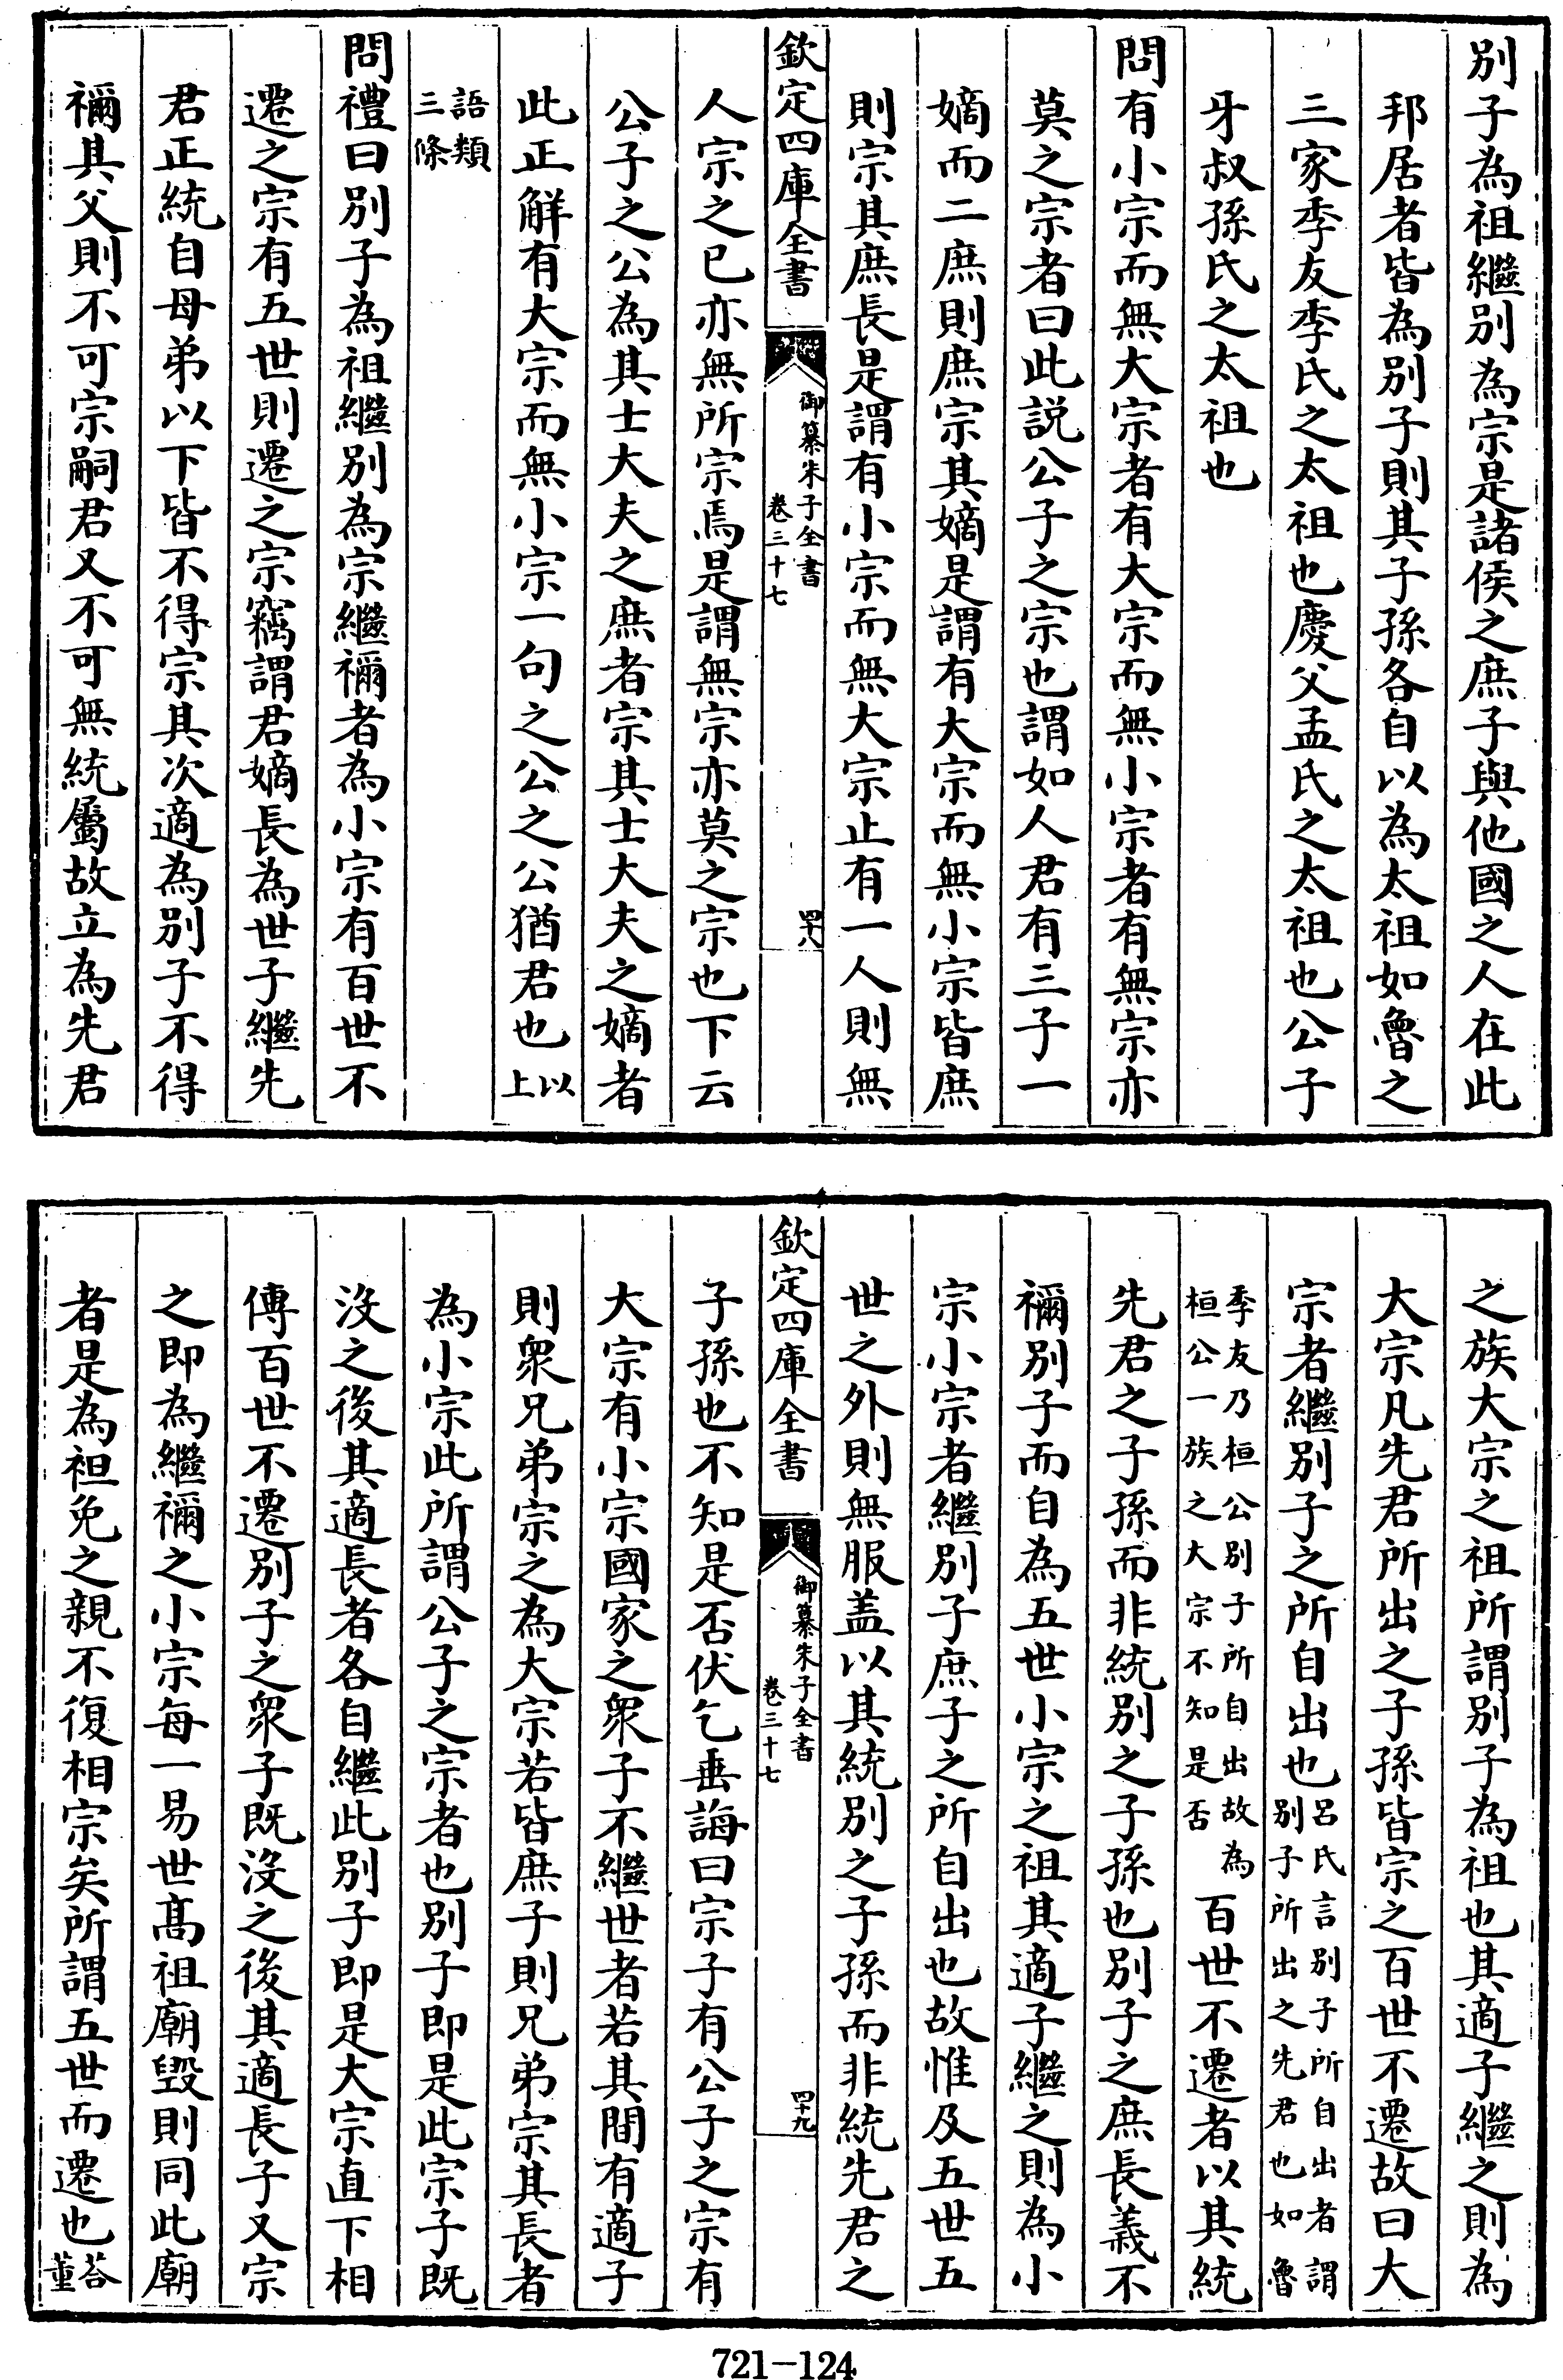 別子為祖繼別為宗是諸侯之庶子與他國之人在此
邦居者皆為別子則其子孫各自以為太祖如魯之
三家季友季氏之太祖也慶父孟氏之太祖也公子
牙叔孫氏之太祖也
問有小宗而無大宗者有大宗而無小宗者有無宗亦
莫之宗者曰此説公子之宗也謂如人君有三子一
嫡而二庶則庶宗其嫡是謂有大宗而無小宗皆庶
則宗其庶長是謂有小宗而無大宗止有一人則無
欽定四庫全書
御纂朱子全書
卷三十七
四十八
人宗之已亦無所宗焉是謂無宗亦莫之宗也下云
公子之公為其士大夫之庶者宗其士大夫之嫡者
此正解有大宗而無小宗一句之公之公猶君也以上
語類
三條
問禮曰別子為祖繼別為宗繼禰者為小宗有百世不
遷之宗有五世則遷之宗竊謂君嫡長為世子繼先
君正統自母弟以下皆不得宗其次適為別子不得
禰其父則不可宗嗣君又不可無統屬故立為先君
之族大宗之祖所謂別子為祖也其適子繼之則為
大宗凡先君所出之子孫皆宗之百世不遷故曰大
宗者繼別子之所自出也呂氏言別子所自出者謂
別子所出之先君也如魯
季友乃桓公別子所自出故為
桓公一族之大宗不知是否
百世不遷者以其統
先君之子孫而非統別之子孫也別子之庶長義不
禰別子而自為五世小宗之祖其適子繼之則為小
宗小宗者繼別子庶子之所自出也故惟及五世五
世之外則無服盖以其統別之子孫而非統先君之
欽定四庫全書
御纂朱子全書
卷三十七
四十九
子孫也不知是否伏乞垂誨曰宗子有公子之宗有
大宗有小宗國家之衆子不繼世者若其間有適子
則衆兄弟宗之為大宗若皆庶子則兄弟宗其長者
為小宗此所謂公子之宗者也別子即是此宗子既
沒之後其適長者各自繼此別子即是大宗直下相
傳百世不遷別子之衆子既沒之後其適長子又宗
之即為繼禰之小宗每一易世髙祖廟毀則同此廟
者是為袒免之親不復相宗矣所謂五世而遷也荅董
721-124